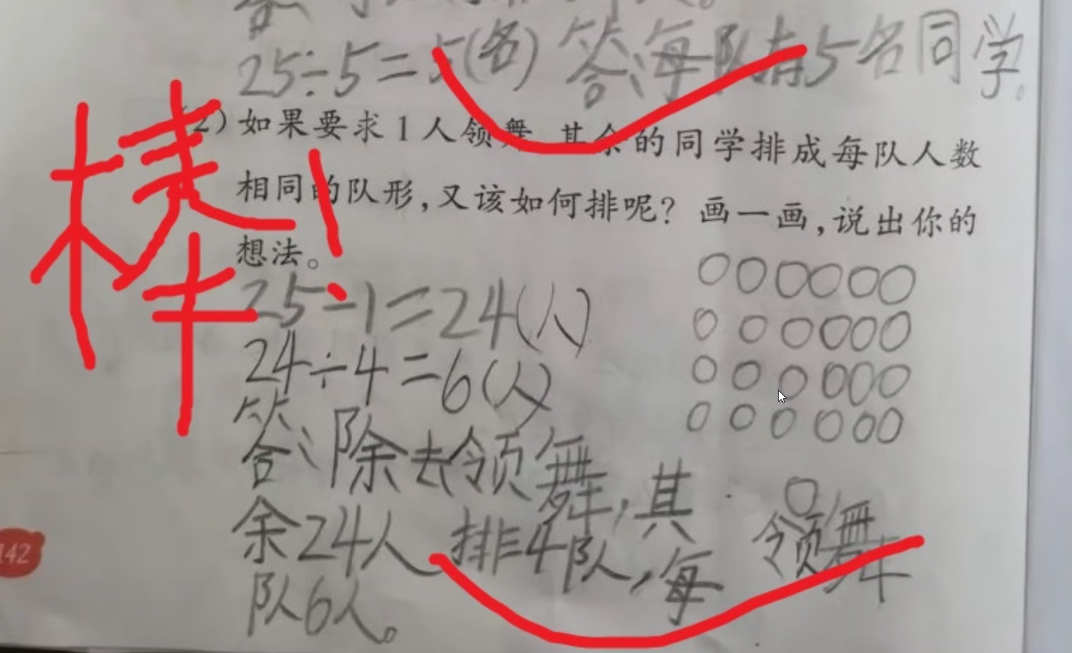 25÷5=5(名) 答:每队有5名同学。
(2)如果要求1人领舞,其余的同学排成每队人数
相同的队形,又该如何排呢?画一画,说出你的
想法。
棒!
25-1=24(人)
24÷4=6(人)
答:除去领舞,其
余24人排4队,每
队6人。
领舞
142